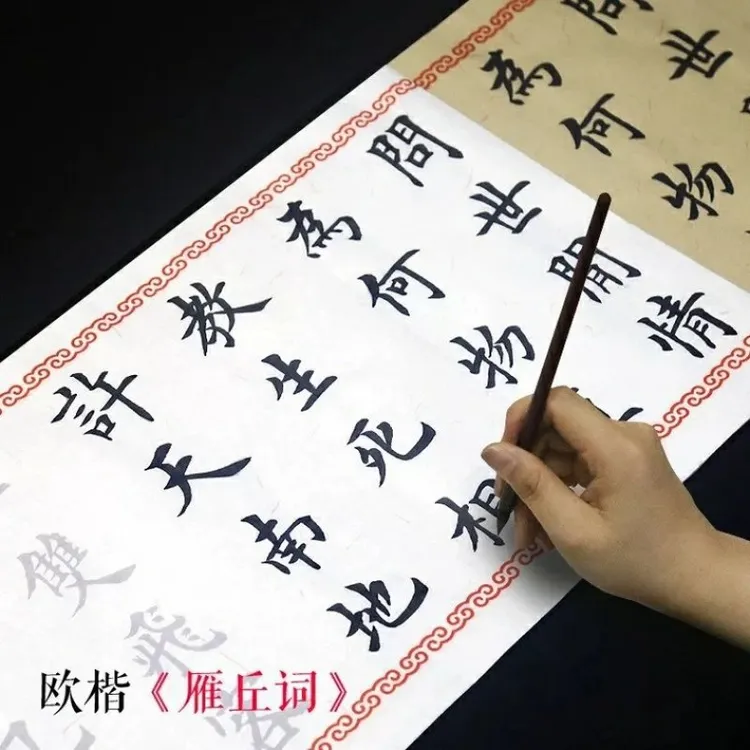 問世
為何物
問世閒情
為何物
教生死相
許天南地
雙飛客
欧楷《雁丘词》